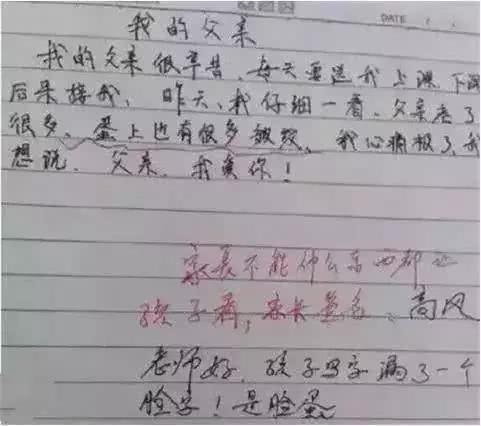 DATE
我的父亲
我的父亲很辛苦、每天要送我上课、下课
后来接我，昨天、我仔细一看、父亲老了
很多、蛋上也有很多皱纹、我心痛极了，我
想说、父亲、我爱你！
家长不能什么东西都让
孩子看，家长签名、高风
老师好，孩子写字漏了一个
脸字！是脸蛋